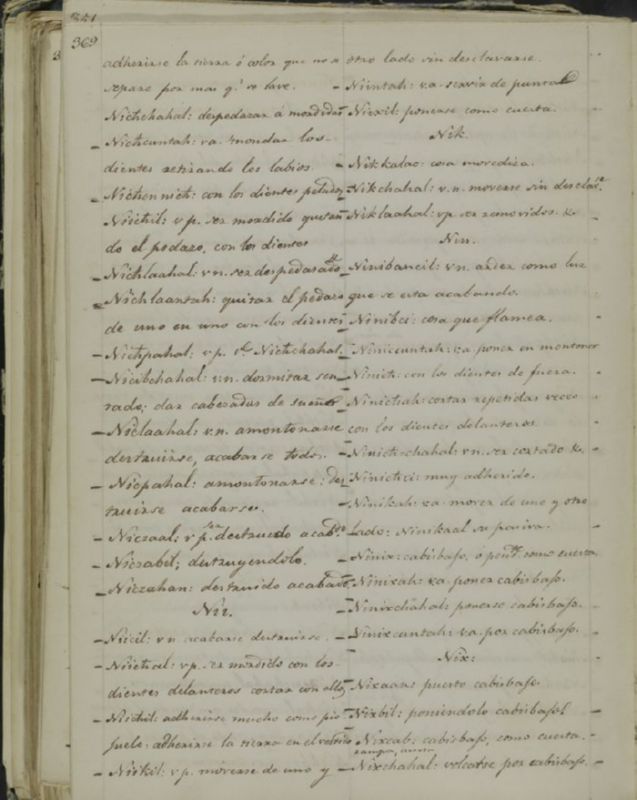 351
369
adherirse la tierra ó color que no se
separe por mas q.e se lave.
- Nichchahal: despedazar á mordidas
- Nichcuntah: va. mondar los
dientes retirando los labios.
- Nichennich: con los dientes pelados
Niichil: v p. ser mordido quitan
do el pedazo, con los dientes
- Nichlaahal: v n. ser despedasado
- Nichlaantah: quitar el pedazo
de uno en uno con los dientes
- Nichpahal: v p. Nichchahal.
- Nicibchahal: v.n. dormitar sen
tado; dar cabezadas de sueño
- Niclaahal: v.n. amontonarse
destruirse, acabarse todo.
- Nicpahal: amontonarse: des
truirse acabarse.
- Niczaal: v p. ser destruido acab.do
- Niczabil; destruyendolo.
- Niczahan: destruido acabado
Nii.
- Niicil: v n. acabarse destruirse.
- Niichal: v p. ser mordido con los
dientes delanteros cortar con ellos
- Niichil: adherirse mucho como pio
juelo. adherirse la tierra en el vestido
- Niikil: v p. moverse de uno y
otro lado sin desclavarse.
- Niintah: v.a. servir de puntal
Niixil: ponerse como cuesta.
Nik.
- Nikkalac: cosa movediza.
- Nikchahal: v.n. moverse sin desclavse
- Niklaahal: vp. ser removidos. &.
Nin.
- Ninibancil: v n. arder como luz
que se esta acabando.
- Ninibci: cosa que flamea.
- Niniccuntah: v.a poner en montones
- Ninich: con los dientes de fuera.
- Ninichah: cortar repetidas veces
con los dientes delanteros
- Ninichchahal: v n. ser cortado &.
- Ninichci: muy adherido.
- Ninikah: va. mover de uno y otro
lado: Ninikaal su pasiva.
- Ninix: cabisbajo, ó pend.te como cuesta.
- Ninixah: v.a. poner cabisbajo.
- Ninixchahal: ponerse cabisbajo.
- Ninixcuntah: v.a. por cabisbajo.
Nix:
- Nixaan: puesto cabisbajo.
- Nixbil: poniendolo cabisbajo.
- Nixcab: cabisbajo, como cuesta.
- Nixchahal: volcarse por cabisbajo.